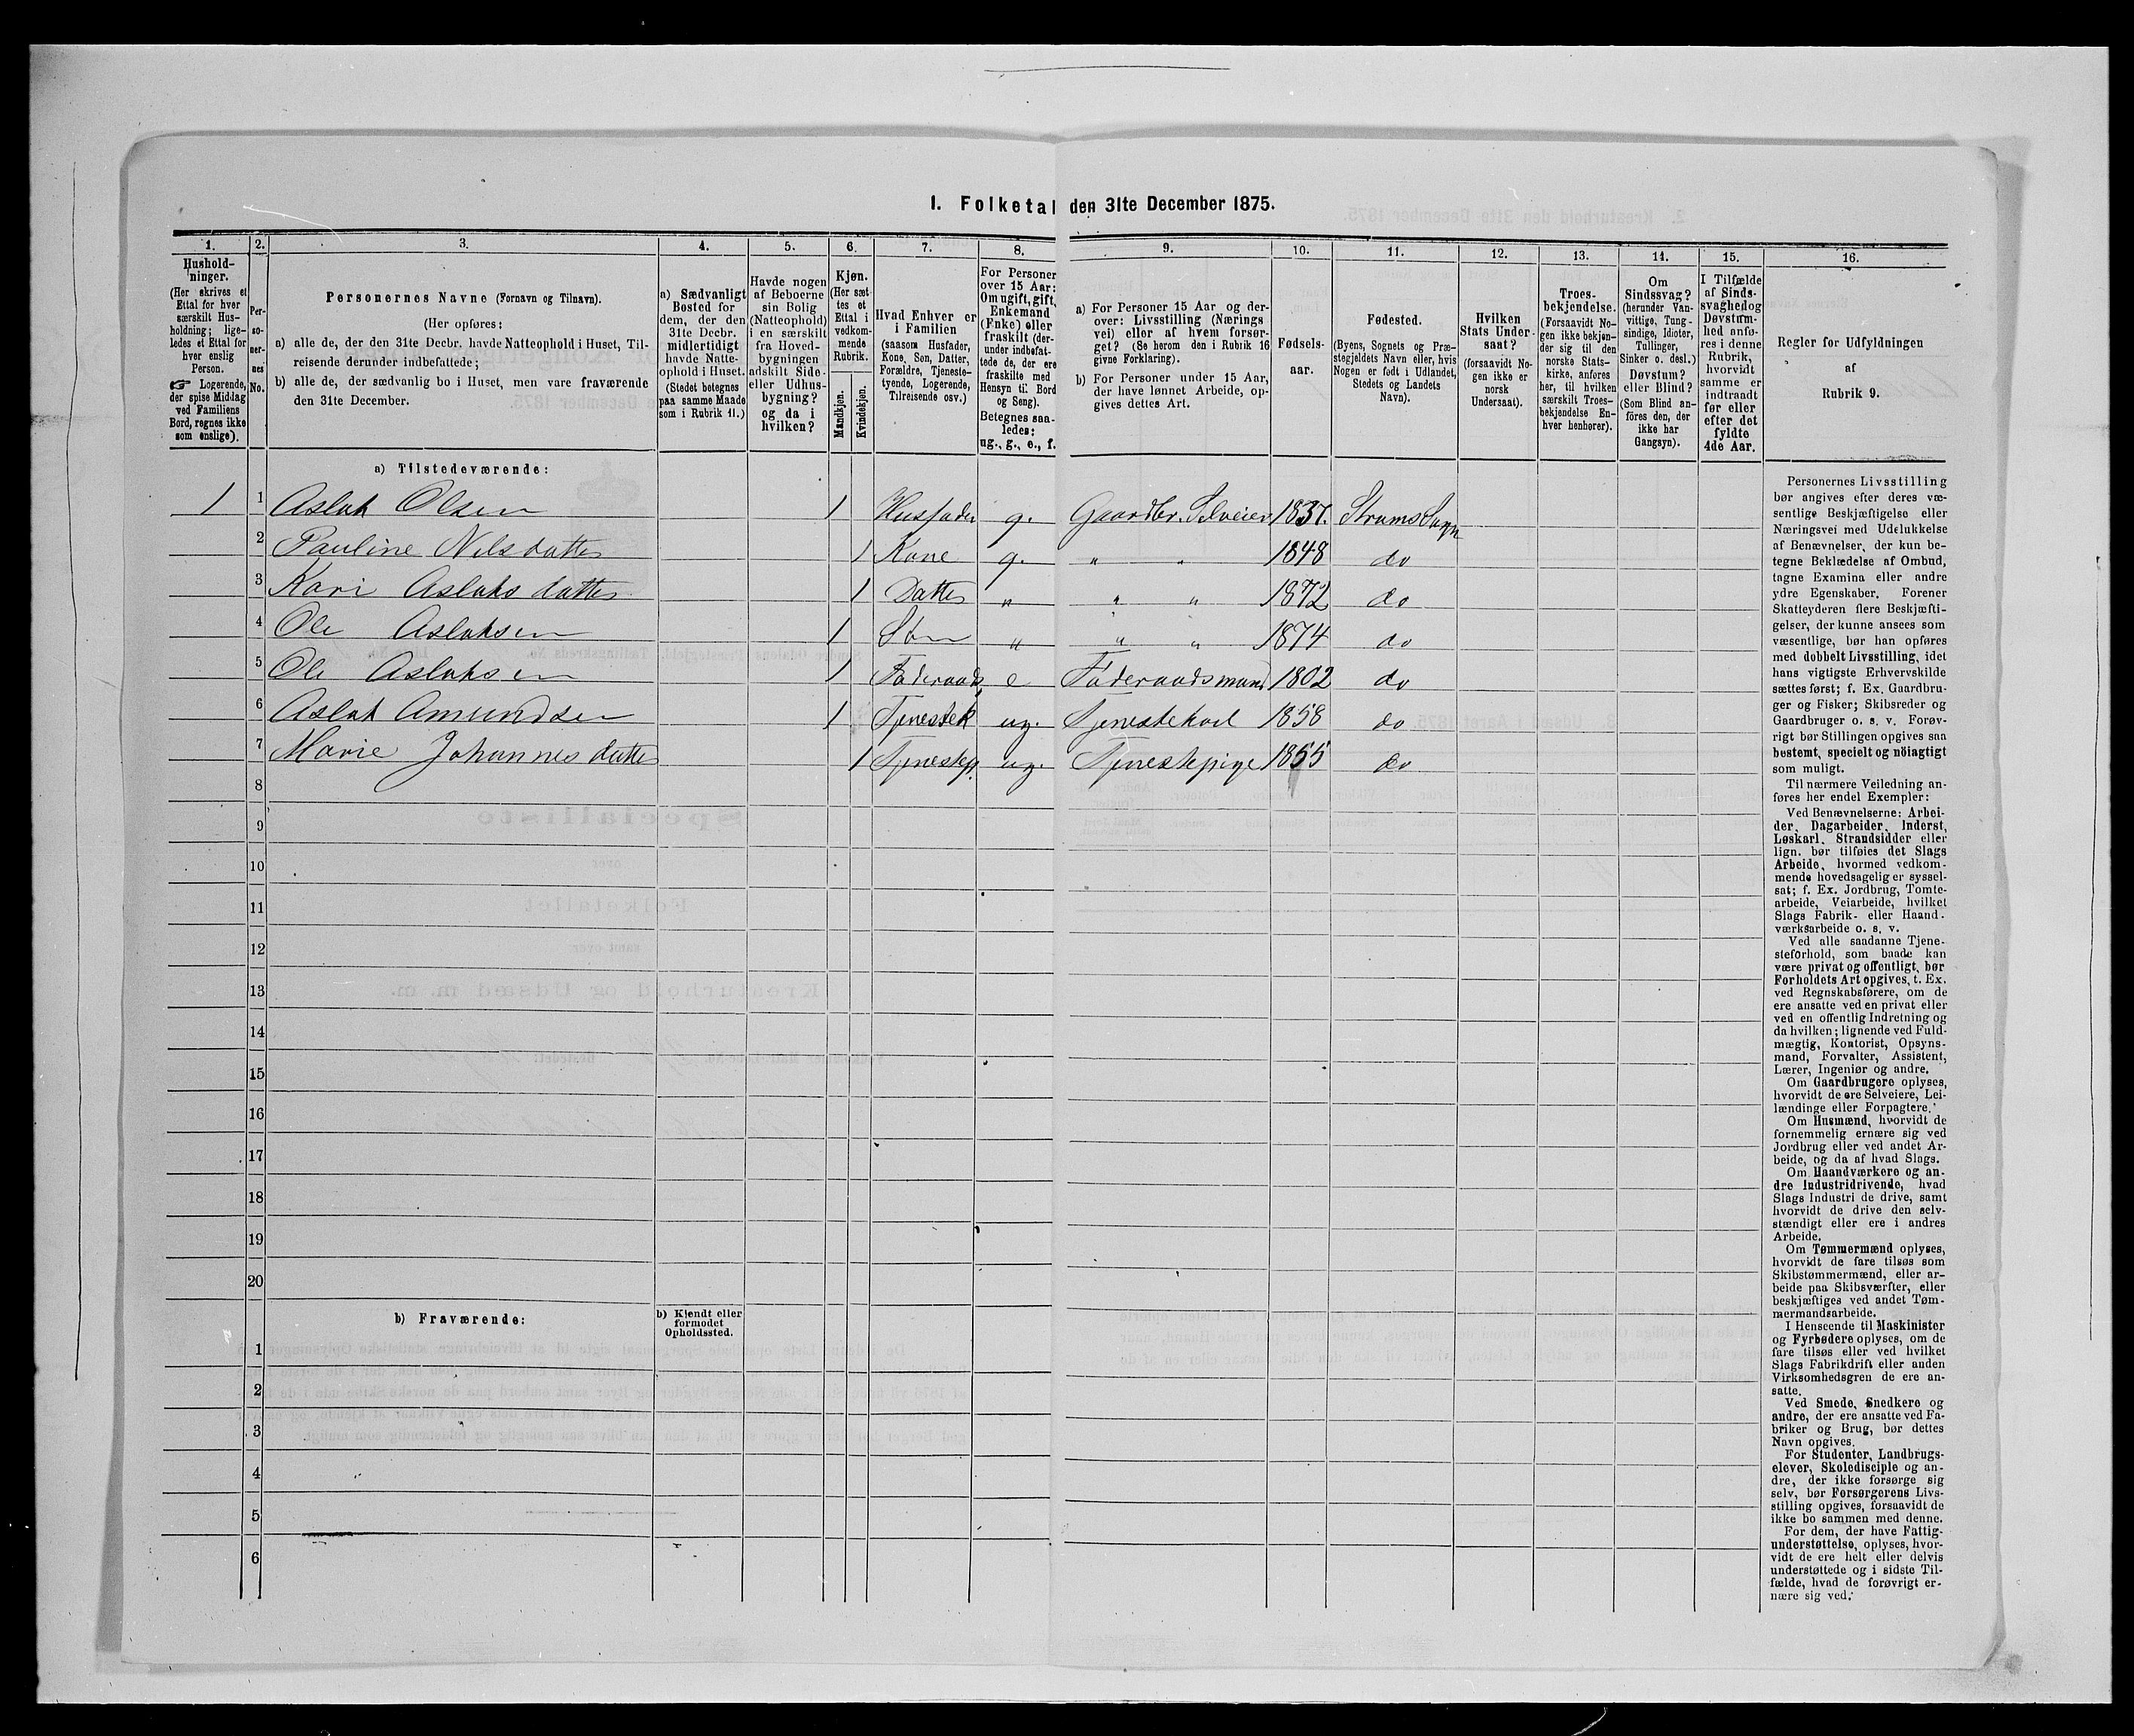 I. Folketal den 31te December 1875.
1. 2. 3. 4. 5. 6. 7. 8. 9. 10. 11. 12. 13. 14. 15. 16.
Hushold-
ninger.
(Her skrives et
Ettal for hver
særskilt Hus-
holdning; lige-
ledes et Ettal for
hver enslig
Person.
☞ Logerende,
der spise Middag
ved Familiens
Bord, regnes ikke
som enslige).
Per-
so-
ner-
nes
No.
Personernes Navne (Fornavn og Tilnavn).
(Her opføres:
a) alle de, der den 31te Decbr. havde Natteophold i Huset, Til-
reisende derunder indbefattede;
b) alle de, der sædvanlig bo i Huset, men vare fraværende
den 31te December.
a) Sædvanligt
Bosted for
dem, der den
31te Decbr.
midlertidigt
havde Natte-
ophold i Huset.
(Stedet betegnes
paa samme Maade
som i Rubrik 11.)
Havde nogen
af Beboerne
sin Bolig
(Natteophold)
i en særskilt
fra Hoved-
bygningen
adskilt Side-
eller Udhus-
bygning?
og da i
hvilken?
Kjøn.
(Her sæt-
tes et
Ettal i
vedkom-
mende
Rubrik.
Mandkjøn.
Kvindekjøn.
Hvad Enhver er
i Familien
(saasom Husfader,
Kone, Søn, Datter,
Forældre, Tjeneste-
tyende, Logerende,
Tilreisende osv.)
For Personer
over 15 Aar:
Om ugift, gift,
Enkemand
(Enke) eller
fraskilt (der-
under indbefat-
tede de, der ere
fraskilte med
Hensyn til Bord
og Seng).
Betegnes saa-
ledes:
ug., g., e., f.
a) For Personer 15 Aar og der-
over: Livsstilling (Nærings
vei) eller af hvem forsør-
get? (Se herom den i Rubrik 16
givne Forklaring).
b) For Personer under 15 Aar,
der have lønnet Arbeide, op-
gives dettes Art.
Fødsels-
aar.
Fødested.
(Byens, Sognets og Præ-
stegjeldets Navn eller, hvis
Nogen er født i Udlandet,
Stedets og Landets
Navn).
Hvilken
Stats Under-
saat?
(forsaavidt No-
gen ikke er
norsk
Undersaat).
Troes-
bekjendelse.
(Forsaavidt No-
gen ikke bekjen-
der sig til den
norske Stats-
kirke, anføres
her, til hvilken
særskilt Troes-
bekjendelse En-
hver henhører).
Om
Sindssvag?
(herunder Van-
vittige, Tung-
sindige, Idioter,
Tullinger,
Sinker o. desl.)
Døvstum?
eller Blind?
(Som Blind an-
föres den, der
ikke har
Gangsyn).
I Tilfælde
af Sinds-
svaghed og
Døvstum-
hed anfø-
res i denne
Rubrik,
hvorvidt
samme er
indtraadt
før eller
efter det
fyldte
4de Aar.
Regler for Udfyldningen
af
Rubrik 9.
a) Tilstedeværende:
1 1 Aslak Olsen 1 Husfader g. Gaardbr. Selveier 1837. Strøms Sogn
2 Pauline Nilsdatter 1 Kone g. " " 1848 do
3 Kari Aslaksdatter 1 Datter " " " 1872 do
4 Ole Aslaksen 1 Søn " " " 1874 do
5 Ole Aslaksen 1 Føderaads e Føderaadsmand 1802 do
6 Aslak Amundsen 1 Tjenestek ug. Tjenestekarl 1858 do
7 Marie Johannesdatter 1 Tjenestep. ug. Tjenestepige 1855 do
8
9
10
11
12
13
14
15
16
17
18
19
20
b) Fraværende:
b) Kjendt eller
formodet
Opholdssted.
1
2
3
4
5
6
Personernes Livsstilling
bør angives efter deres væ-
sentlige Beskjæftigelse eller
Næringsvei med Udelukkelse
af Benævnelser, der kun be-
tegne Beklædelse af Ombud,
tagne Examina eller andre
ydre Egenskaber. Forener
Skatteyderen flere Beskjæfti-
gelser, der kunne ansees som
væsentlige, bør han opføres
med dobbelt Livsstilling, idet
hans vigtigste Erhvervskilde
sættes først; f. Ex. Gaardbru-
ger og Fisker; Skibsreder og
Gaardbruger o. s. v. Forøv-
rigt bør Stillingen opgives saa
bestemt, specielt og nöiagtigt
som muligt.
Til nærmere Veiledning an-
føres her endel Exempler:
Ved Benævnelserne: Arbei-
der, Dagarbeider, Inderst,
Løskarl, Strandsidder eller
lign. bør tilføies det Slags
Arbeide, hvormed vedkom-
mende hovedsagelig er syssel-
sat; f. Ex. Jordbrug, Tomte-
arbeide, Veiarbeide, hvilket
Slags Fabrik- eller Haand-
værksarbeide o. s. v.
Ved alle saadanne Tjene-
steforhold, som baade kan
være privat og offentligt, bør
Forholdets Art opgives, t. Ex.
ved Regnskabsførere, om de
ere ansatte ved en privat eller
ved en offentlig Indretning og
da hvilken; lignende ved Fuld-
mægtig, Kontorist, Opsyns-
mand, Forvalter, Assistent,
Lærer, Ingeniør og andre.
Om Gaardbrugere oplyses,
hvorvidt de ere Selveiere, Lei-
lændinge eller Forpagtere.
Om Husmænd, hvorvidt de
fornemmelig ernære sig ved
Jordbrug eller ved andet Ar-
beide, og da af hvad Slags.
Om Haandværkere og an-
dre Industridrivende, hvad
Slags Industri de drive, samt
hvorvidt de drive den selv-
stændigt eller ere i andres
Arbeide.
Om Tømmermænd oplyses,
hvorvidt de fare tilsøs som
Skibstømmermænd, eller ar-
beide paa Skibsværfter, eller
beskjæftiges ved andet Tøm-
mermandsarbeide.
I Henseende til Maskinister
og Fyrbødere oplyses, om de
fare tilsøs eller ved hvilket
Slags Fabrikdrift eller anden
Virksomhedsgren de ere an-
satte.
Ved Smede, Snedkere og
andre, der ere ansatte ved Fa-
briker og Brug, bør dettes
Navn opgives.
For Studenter, Landbrugs-
elever, Skoledisciple og an-
dre, der ikke forsørge sig
selv, bør Forsørgerens Livs-
stilling opgives, forsaavidt de
ikke bo sammen med denne.
For dem, der have Fattig-
understøttelse, oplyses, hvor-
vidt de ere helt eller delvis
understøttede og i sidste Til-
fælde, hvad de forøvrigt er-
nære sig ved.